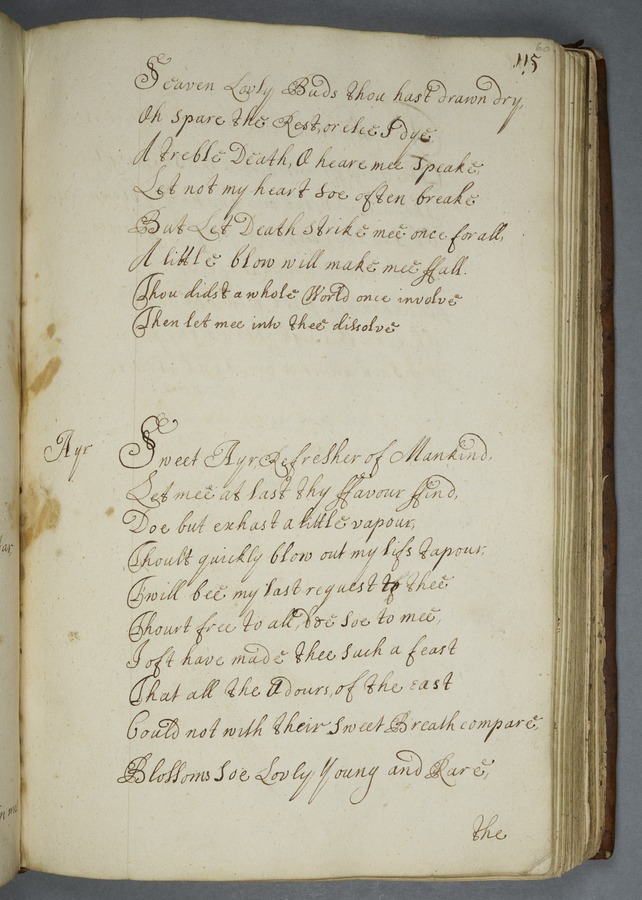 60
115
Seaven Lovly Buds thou hast drawn dry,
Oh spare the Rest, or else I dye
A treble Death, O heare mee speake,
Let not my heart soe often breake
But Let Death strike mee once for all,
A little blow will make mee ffall.
Thou didst a whole World once involve
Then let mee into thee dissolve
Ayr
Sweet Ayr, Refresher of Mankind,
Let mee at last thy ffavour ffind,
Doe but exhast a little vapour,
Thoult quickly blow out my lifs tapour,
T'will bee my last request to thee
Thourt free to all, doe soe to mee,
I oft have made thee such a feast
That all the Adours, of the east
Could not with their sweet Breath compare,
Blossoms soe Lovly Young and Rare,
the